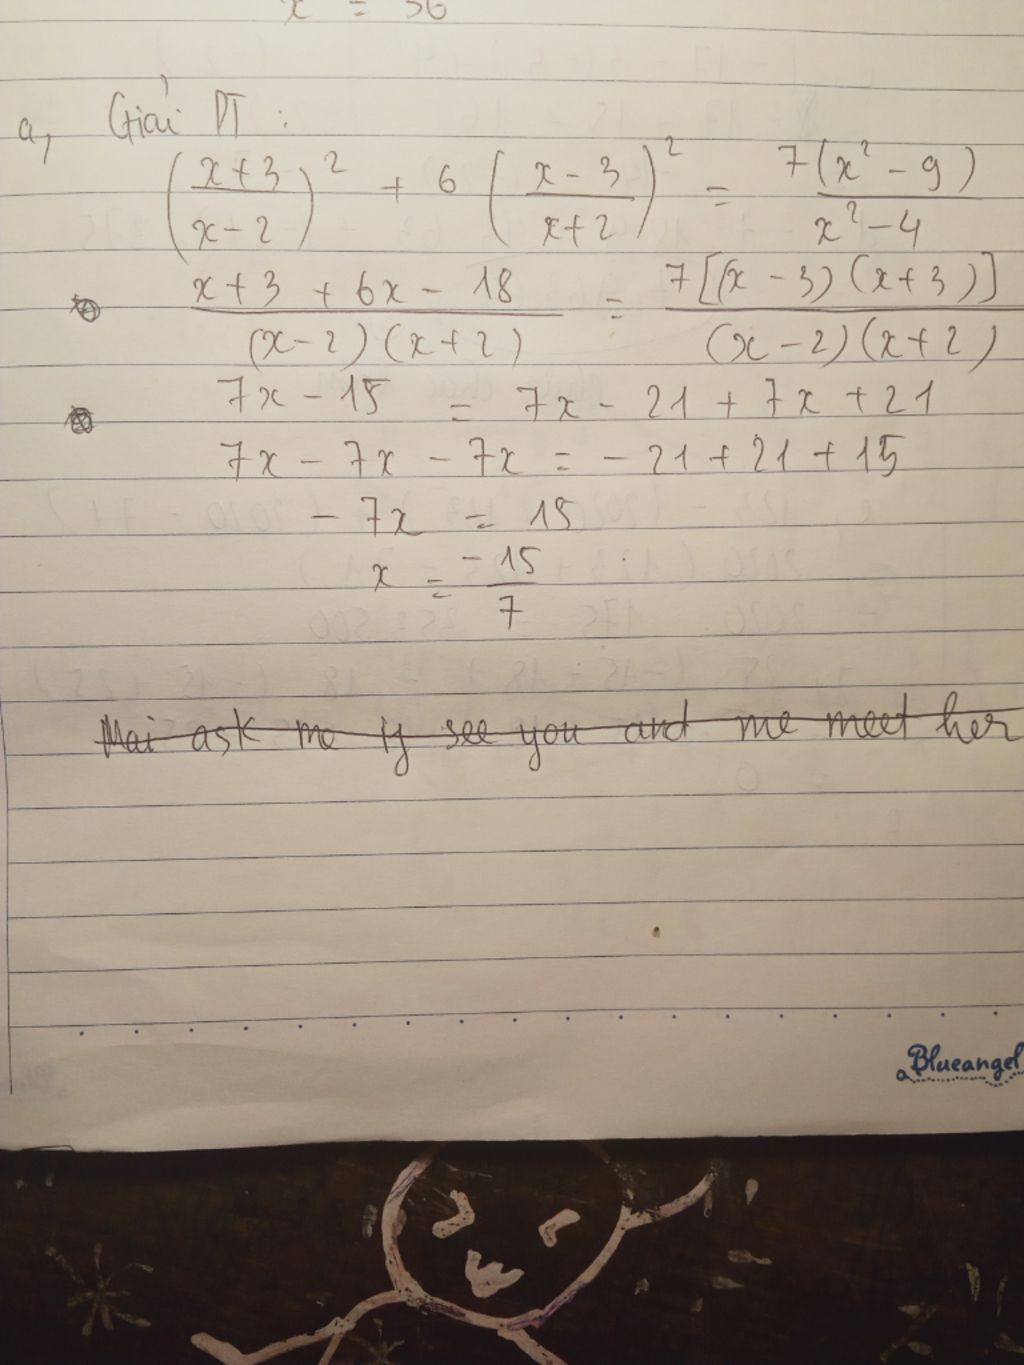 x = 36
a, Giải PT :
(x+3 / x-2)² + 6 (x-3 / x+2)² = 7(x²-9) / x²-4
x+3 + 6x - 18 / (x-2)(x+2) = 7[(x-3)(x+3)] / (x-2)(x+2)
7x - 15 = 7x - 21 + 7x + 21
7x - 7x - 7x = -21 + 21 + 15
- 7x = 15
x = -15 / 7
Mai ask me if see you and me meet her
Blueangel